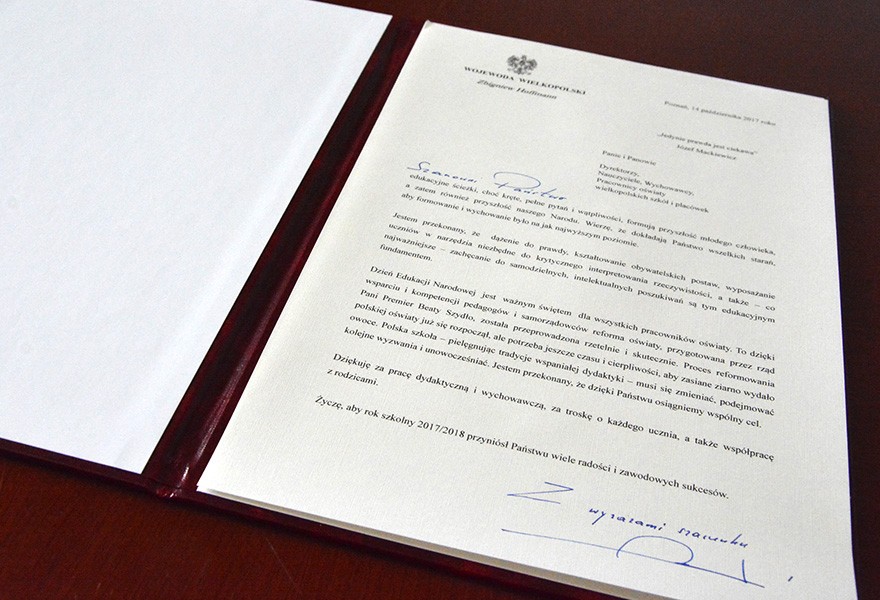 WOJEWODA WIELKOPOLSKI
Zbigniew Hoffmann
Poznań, 14 października 2017 roku
„Jedynie prawda jest ciekawa”
Józef Mackiewicz
Panie i Panowie
Dyrektorzy,
Nauczyciele, Wychowawcy,
Pracownicy oświaty
wielkopolskich szkół i placówek
Szanowni Państwo
edukacyjne ścieżki, choć kręte, pełne pytań i wątpliwości, formują przyszłość młodego człowieka,
a zatem również przyszłość naszego Narodu. Wierzę, że dokładają Państwo wszelkich starań,
aby formowanie i wychowanie było na jak najwyższym poziomie.
Jestem przekonany, że dążenie do prawdy, kształtowanie obywatelskich postaw, wyposażanie
uczniów w narzędzia niezbędne do krytycznego interpretowania rzeczywistości, a także – co
najważniejsze – zachęcanie do samodzielnych, intelektualnych poszukiwań są tym edukacyjnym
fundamentem.
Dzień Edukacji Narodowej jest ważnym świętem dla wszystkich pracowników oświaty. To dzięki
wsparciu i kompetencji pedagogów i samorządowców reforma oświaty, przygotowana przez rząd
Pani Premier Beaty Szydło, została przeprowadzona rzetelnie i skutecznie. Proces reformowania
polskiej oświaty już się rozpoczął, ale potrzeba jeszcze czasu i cierpliwości, aby zasiane ziarno wydało
owoce. Polska szkoła – pielęgnując tradycje wspaniałej dydaktyki – musi się zmieniać, podejmować
kolejne wyzwania i unowocześniać. Jestem przekonany, że dzięki Państwu osiągniemy wspólny cel.
Dziękuję za pracę dydaktyczną i wychowawczą, za troskę o każdego ucznia, a także współpracę
z rodzicami.
Życzę, aby rok szkolny 2017/2018 przyniósł Państwu wiele radości i zawodowych sukcesów.
Z wyrazami szacunku